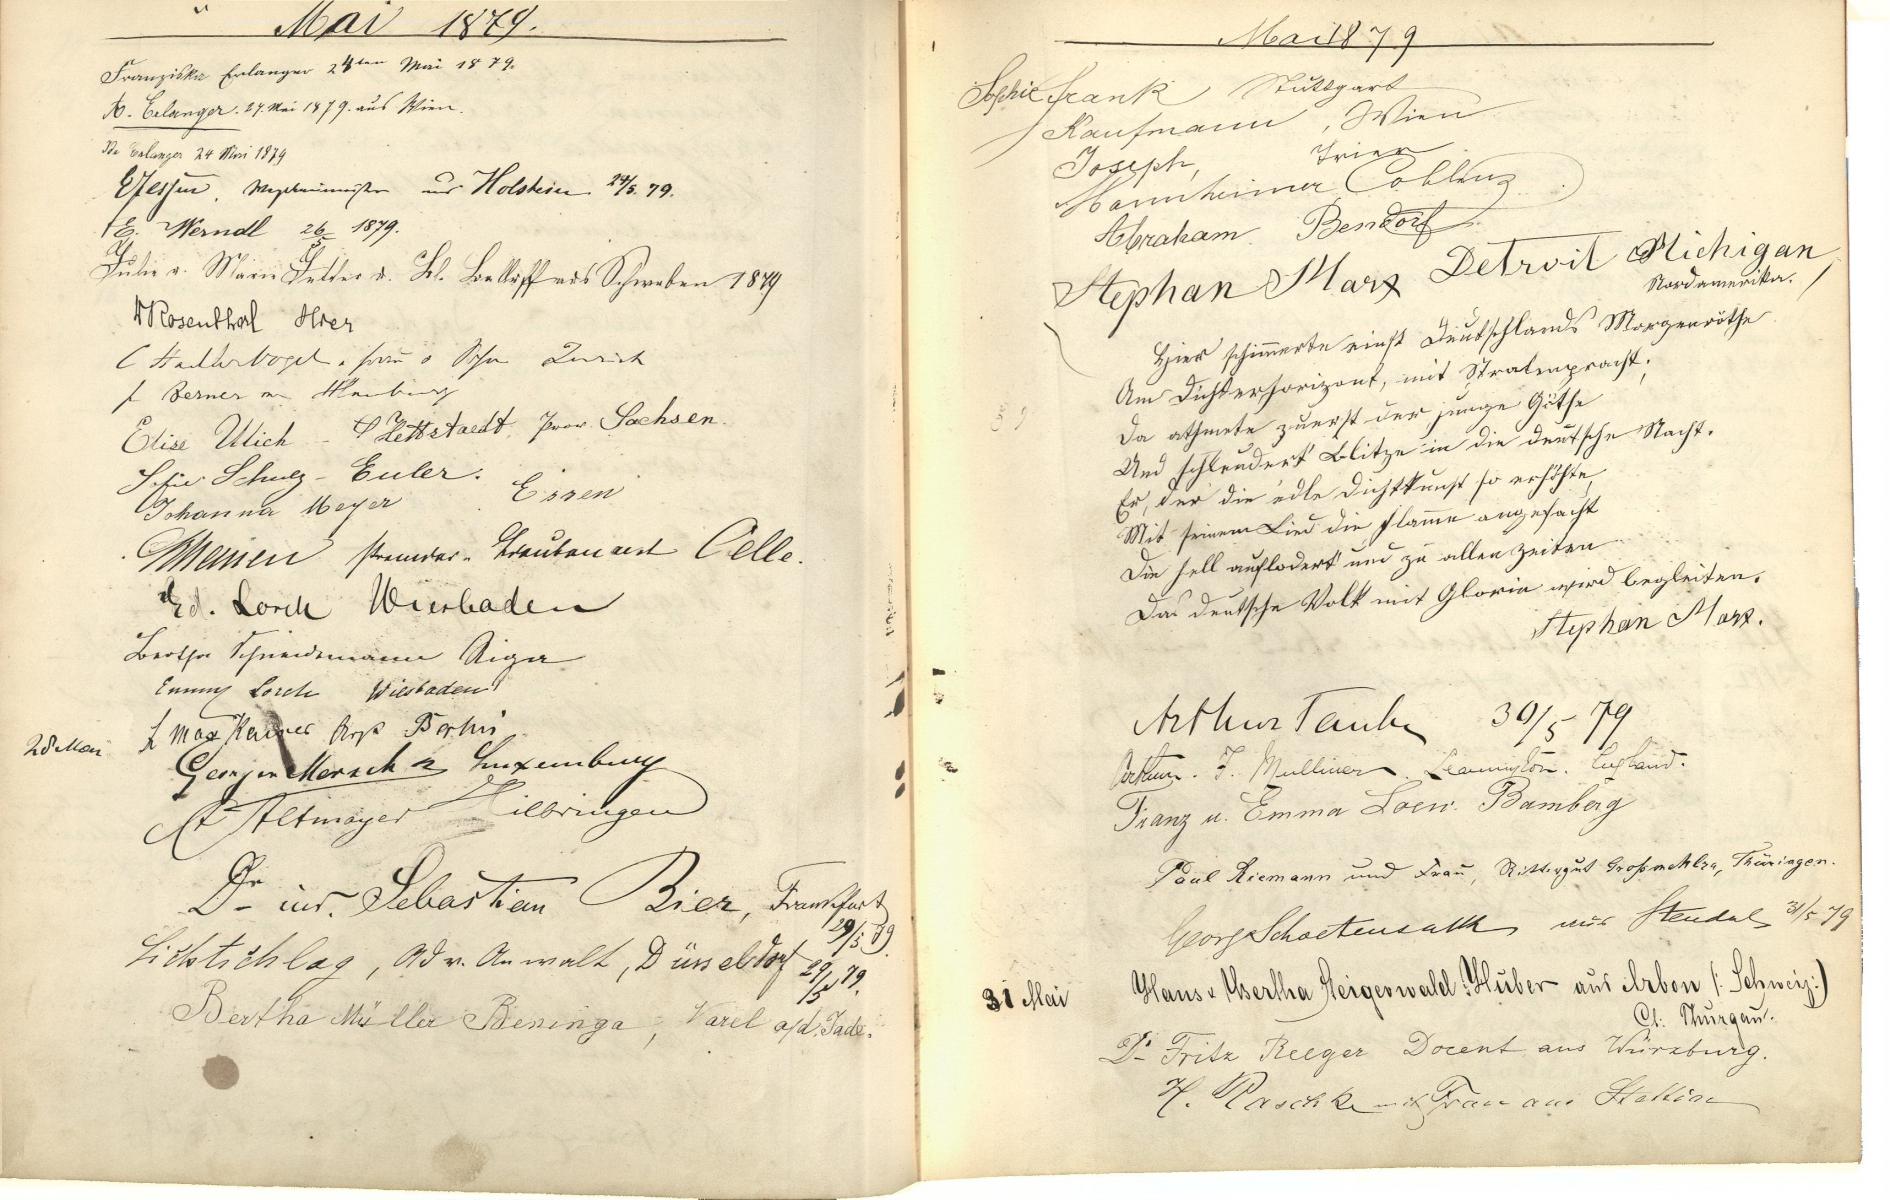 Mai 1879.
Franziska Erlanger 24ten Mai 1879.
Erlanger. 24. Mai 1879. aus Wien.
Erlanger 24 Mai 1879
aus Holstein 24/5 79.
E. Werndl 26/5 1879.
Julie u. Marie aus Schwaben 1879
Rosenthal Hier
Zürich
Berner Hamburg
Elise Ulich - Hettstaedt, Prov. Sachsen.
Sofie Schulz - Euler.
Johanna Meyer Essen
Celle.
Ed. Lorch Wiesbaden
Bertha Riga
Emmy Lorch Wiesbaden
28 Mai
Max Berlin
Mersch Luxemburg
Altmayer Hilbringen
Dr iur. Sebastian Bier, Frankfurt
29/5 79.
Lichtschlag, Adv. Anwalt, Düsseldorf 29/5 79.
Bertha Müller Beninga, Varel a/d. Jade.
Mai 1879
Sophie Frank Stuttgart
Kaufmann, Wien
Joseph, Trier
Mannheimer Coblenz
Abraham Bendorf
Stephan Marx Detroit Michigan
Nordamerika.
Hier schimmerte einst Deutschlands Morgenröthe
Am Dichterhorizont, mit Stralenpracht;
Da athmete zuerst der junge Göthe
Und schleudert' Blitze in die deutsche Nacht.
Er, der die edle Dichtkunst so erhöhte,
Mit seinem Lied die Flamme angefacht
Die hell auflodert und zu allen Zeiten
Das deutsche Volk mit Gloria wird begleiten.
Stephan Marx.
Arthur Taube 30/5 79
Arthur. F. Mulliner. Leamington. England.
Franz u. Emma Loew. Bamberg
Paul Riemann und Frau, Rittergut Großmehlra, Thüringen.
Georg Schoetensack aus Stendal 31/5 79
31 Mai
Hans & Bertha Steigerwald-Huber aus Arbon (: Schweiz:)
Ct: Thurgau.
Dr Fritz Reeger Docent aus Würzburg.
H. Raschke mit Frau aus Stettin